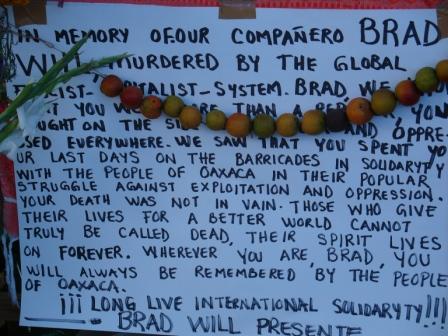 IN MEMORY OF.OUR COMPAÑERO BRAD
WILL MURDERED BY THE GLOBAL
SYSTEM. BRAD, WE
YOU THAN A YOU
ON THE AND OPPRE
SSED EVERYWHERE. WE SAW THAT YOU SPENT YO
UR LAST DAYS ON THE BARRICADES IN SOLIDARYTY
WITH THE PEOPLE OF OAXACA IN THEIR POPULAR
STRUGGLE AGAINST EXPLOITATION AND OPPRESSION.
YOUR DEATH WAS NOT IN VAIN. THOSE WHO GIVE
THEIR LIVES FOR A BETTER WORLD CANNOT
TRULY BE CALLED DEAD, THEIR SPIRIT LIVES
ON FOREVER. WHEREVER YOU ARE, BRAD, YOU
WILL ALWAYS BE REMEMBERED BY THE PEOPLE
OF OAXACA.
¡¡¡ LONG LIVE INTERNATIONAL SOLIDARYTY!!!
BRAD WILL PRESENTE